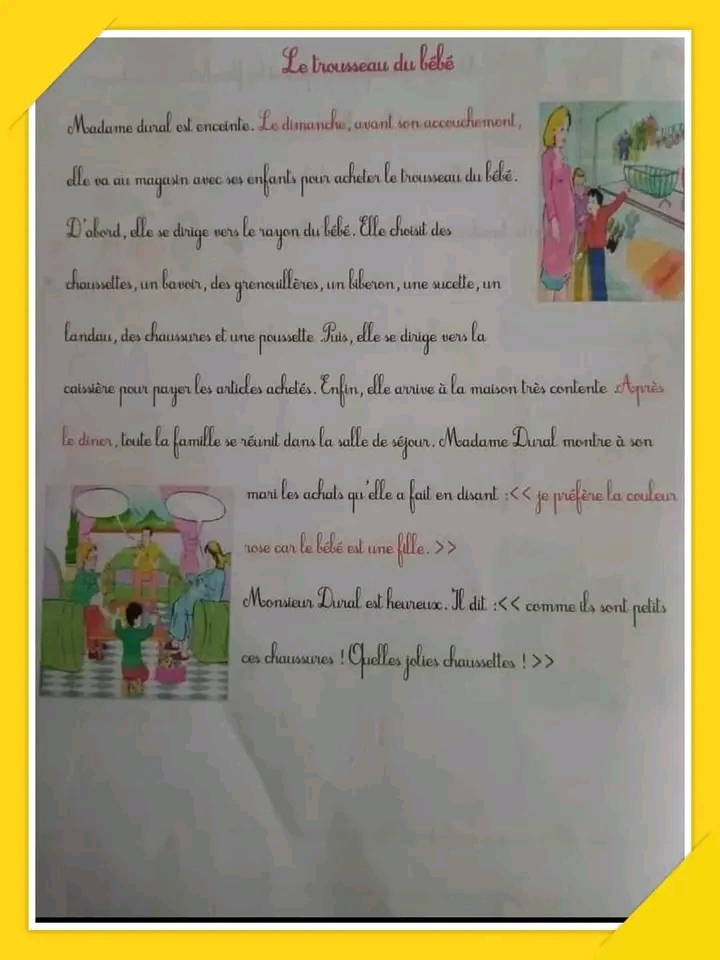 Le trousseau du bébé
Madame dural est enceinte. Le dimanche, avant son accouchement,
elle va au magasin avec ses enfants pour acheter le trousseau du bébé.
D'abord, elle se dirige vers le rayon du bébé. Elle choisit des
chaussettes, un bavoir, des grenouillères, un biberon, une sucette, un
landau, des chaussures et une poussette .Puis, elle se dirige vers la
caissière pour payer les articles achetés. Enfin, elle arrive à la maison très contente .Après
le diner, toute la famille se réunit dans la salle de séjour. Madame Dural montre à son
mari les achats qu'elle a fait en disant :<< je préfère la couleur
rose car le bébé est une fille. >>
Monsieur Dural est heureux. Il dit :<< comme ils sont petits
ces chaussures ! Quelles jolies chaussettes ! >>